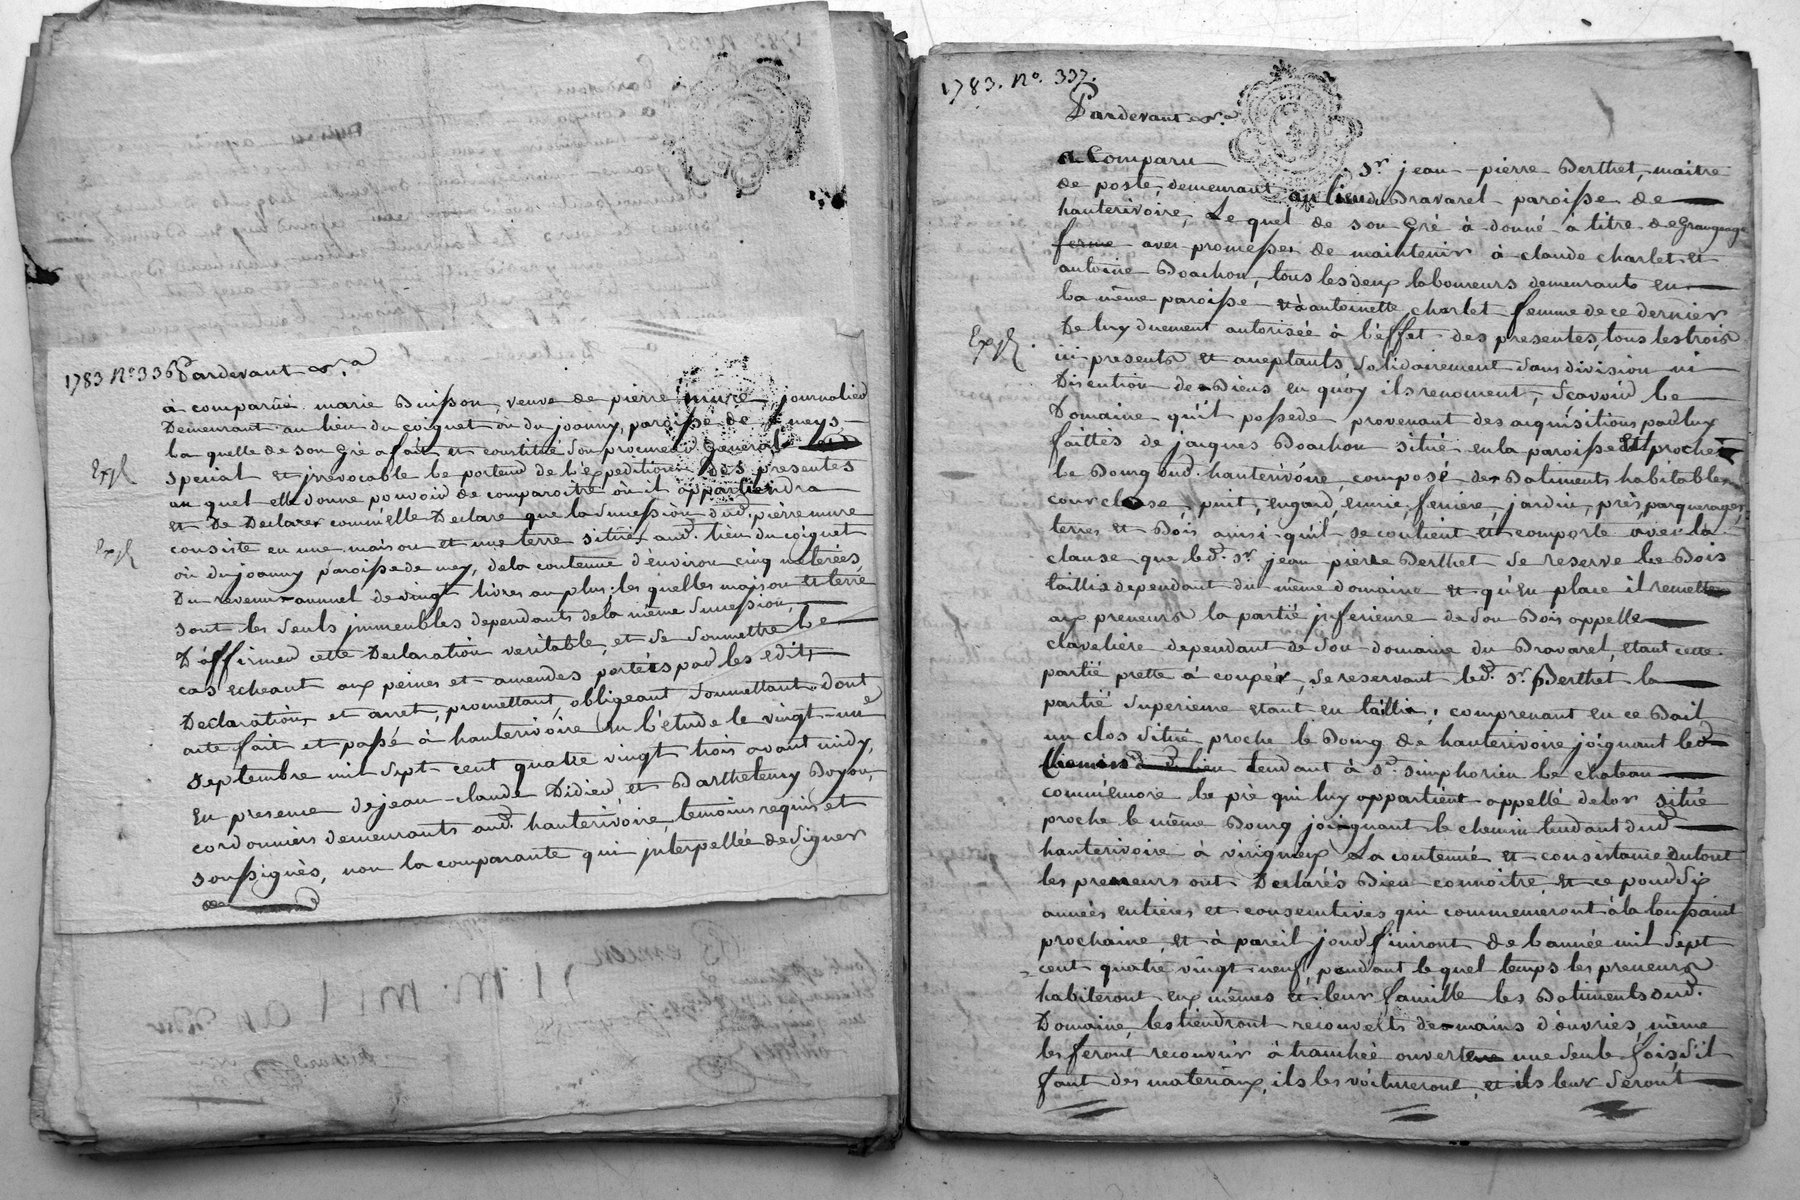 1783 N.o 336 Pardevant &.a
à comparüe marie Buisson, veuve de pierre mure, journalier
Demeurant au lieu du coignet ou du joanny, paroisse de meys,
la quelle de son Gré a fait et constitué son procureur General
Expé
special et jrrevocable le porteur de l'expedition des presentes
au quel elle donne pouvoir de comparoitre où il appartiendra
et De Declarer comm'elle Declare que la succession dud. pierre mure
Expé
consiste en une maison et une terre situés aud. lieu du coignet
ou du joanny paroisse de mey, de la contenue d'environ cinq meterées,
Du revenu annuel de vingt livres au plus; les quelles maison et terre
sont les seuls jmmeubles dependants de la même succession,
D'affirmer cette Declaration veritable, et se soumettre le
cas echeant aux peines et amendes portées par les edits,
Declarations et arret, promettant, obligeant soumettant. Dont
acte fait et passé à hauterivoire En l'étude le vingt-un
septembre mil sept cent quatre vingt trois avant midy,
En presence de jean-claude Didier et Barthelemy Boyon,
cordonniers demeurants aud. hauterivoire, temoins requis et
soussignès, non la comparante qui jnterpellée de signer
1783. N.o 337.
Pardevant &.a
a Comparu
S.r jean-pierre Berthet, maitre
de poste, demeurant au lieu du Bravarel paroisse de
hauterivoire, Le quel de son Gré à donné à titre de Grangeage
ferme avec promesses de maintenir à claude charlet et
antoine Boachon, tous les deux laboureurs demeurants en
la même paroisse et à antoinette charlet femme de ce dernier
De luy duement autorisée à l'éffet des presentes, tous les trois
Expé.
ici presents et acceptants solidairement sans division ni
Discution de Biens en quoy ils renoncent, Scavoir le
Domaine qu'il possede provenant des acquisitions par luy
faittés de jacques Boachon situé en la paroisse Et proche
le Bourg dud. hauterivoire, composé de Batiments habitables,
cour close, puit, engard, ecurie, feniere, jardin, prés, paquerages,
terres et Bois ainsi qu'il se contient et comporte avec la
clause que led. S.r jean pierre Berthet se reserve le Bois
taillis dependant du même domaine et qu'en place il remettra
aux preneurs la partié jnferieure de son Bois appellé
claveliere dependant de son domaine du Bravarel, etant cette
partié prette à coupér, se reservant led. S.r Berthet la
partié superieure etant en taillis; comprenant en ce Bail
un clos situé proche le Bourg de hauterivoire joignant led.
Chemins tendant à S.t simphorien le chateau
comm'encore le pré qui luy appartient appellé delor situé
proche le même Bourg joignant le chemin tendant dud.
hauterivoire à virigneux La contenue et consistance du tout
les preneurs ont Declarés Bien connoitre, et ce pour Six
années entieres et consecutives qui commenceront à la toussaint
prochaine, et à pareil jour finiront de l'année mil sept
cent quatre vingt neuf, pendant le quel temps les preneurs
habiteront eux mêmes et leur famille les Batiments dud.
Domaine, les tiendront recouverts de mains d'ouvries, même
les feront recouvrir à tranchée ouverte une seule fois, s'il
faut des materiaux, ils les voitureront, et ils leur seront